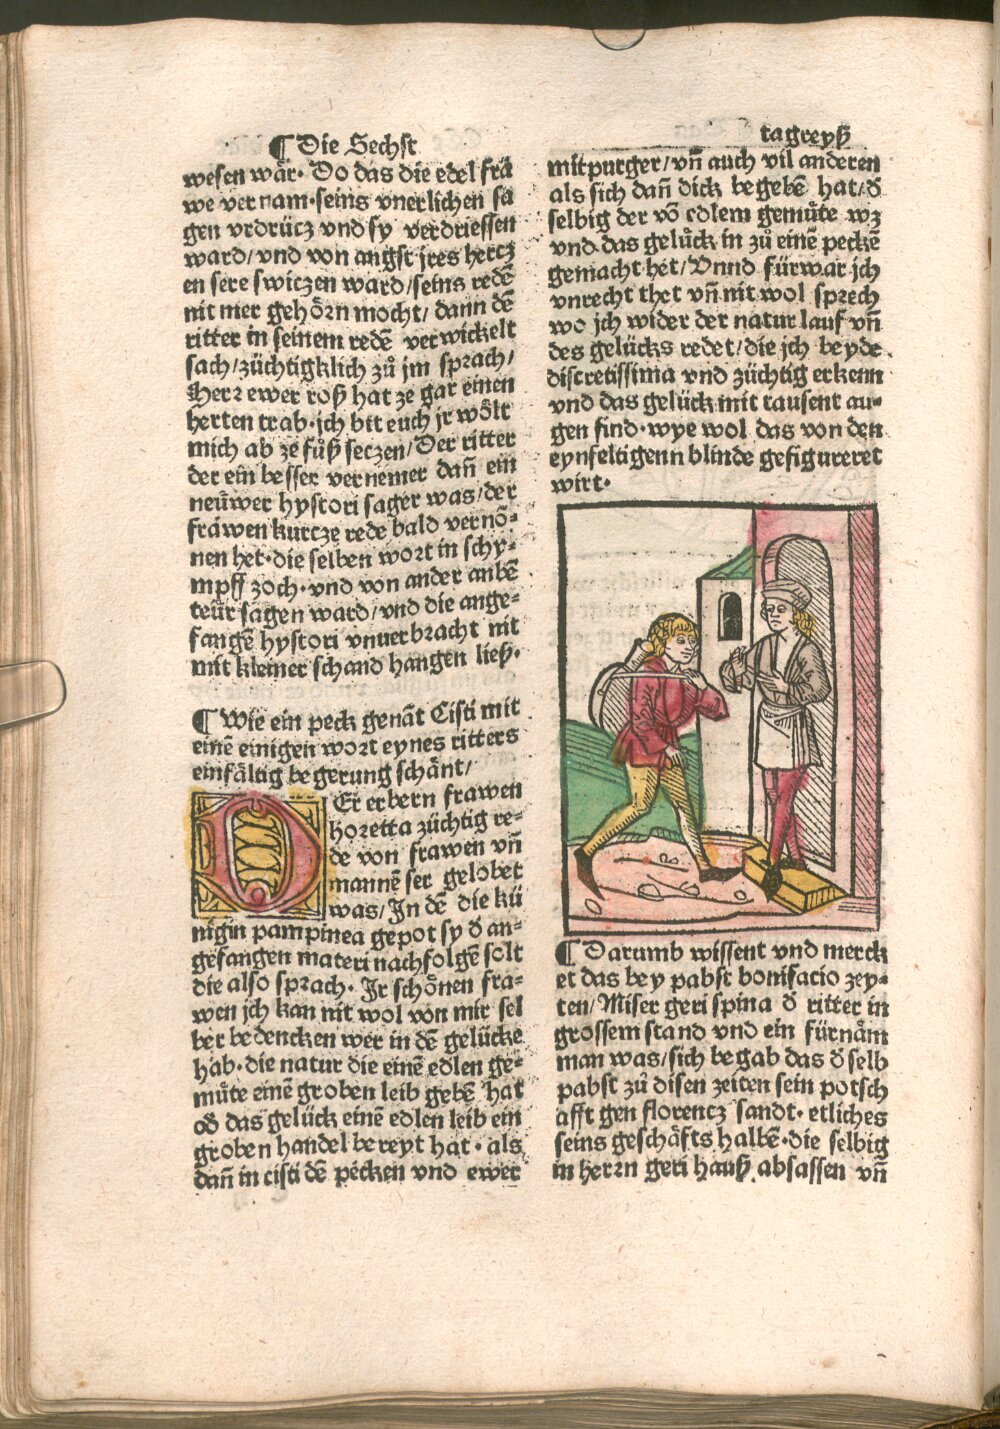 ¶ Die Sechst
wesen wår· Do das die edel frå
we vernam·seins vnerlichen sa
gen vrdrücz vnd sy verdriessen
ward/vnd von angst jres hercz
en sere swiczen ward/seins redẽ
nit mer gehörn mocht/ dann dẽ
ritter in seinem redẽ verwickelt
sach/züchtigklich zů jm sprach/
Herz ewer roß hat ze gar einen
herten trab·ich bit euch jr wölt
mich ab ze fůß seczen/Der ritter
der ein besser vernemer dañ ein
neüwer hystori sager was/der
fråwen kurcze rede bald vernõ-
nen het·die selben wort in schy-
mpff zoch·vnd von ander anbẽ
teür sagen ward/vnd die ange-
fangẽ hystori vnuerbracht nit
mit kleiner schand hangen ließ·
¶ Wie ein peck genãt Cisti mit
einẽ einigen wort eynes ritters
einfåltig begerung schånt/
DEr erbern frawen
horetta züchtig re-
de von frawen vñ
mannẽ ser gelobet
was/In dẽ die kü
nigin pampinea gepot sy ð an-
gefangen materi nachfolgẽ solt
die also sprach· Ir schönen fra-
wen jch kan nit wol von mir sel
ber bedencken wer in dẽ gelücke
hab·die natur die einẽ edlen ge-
müte einẽ groben leib gebẽ hat
oð das gelück einẽ edlen leib ein
groben handel bereyt hat· als
dañ in cisti dẽ pecken vnd ewer
tagreyß
mitpurger/vñ auch vil anderen
als sich dañ dick begebẽ hat/ð
selbig der võ edlem gemüte wz
vnd das gelück in zů einẽ peckẽ
gemacht het/Vnnd fürwar jch
vnrecht thet vñ nit wol sprech
wo jch wider der natur lauf vñ
des gelücks redet/die jch beyde
discretissima vnd züchtig erkenn
vnd das gelück mit tausent au-
gen find·wye wol das von den
eynfeltigenn blinde gefigureret
wirt·
¶ Darumb wissent vnd merck
et das bey pabst bonifacio zey-
ten/Miser geri spina ð ritter in
grossem stand vnd ein fürnåm
man was/sich begab das ð selb
pabst zů disen zeiten sein potsch
afft gen florencz sandt· etliches
seins geschåfts halbẽ·die selbig
in herrn geri hauß absassen vñ